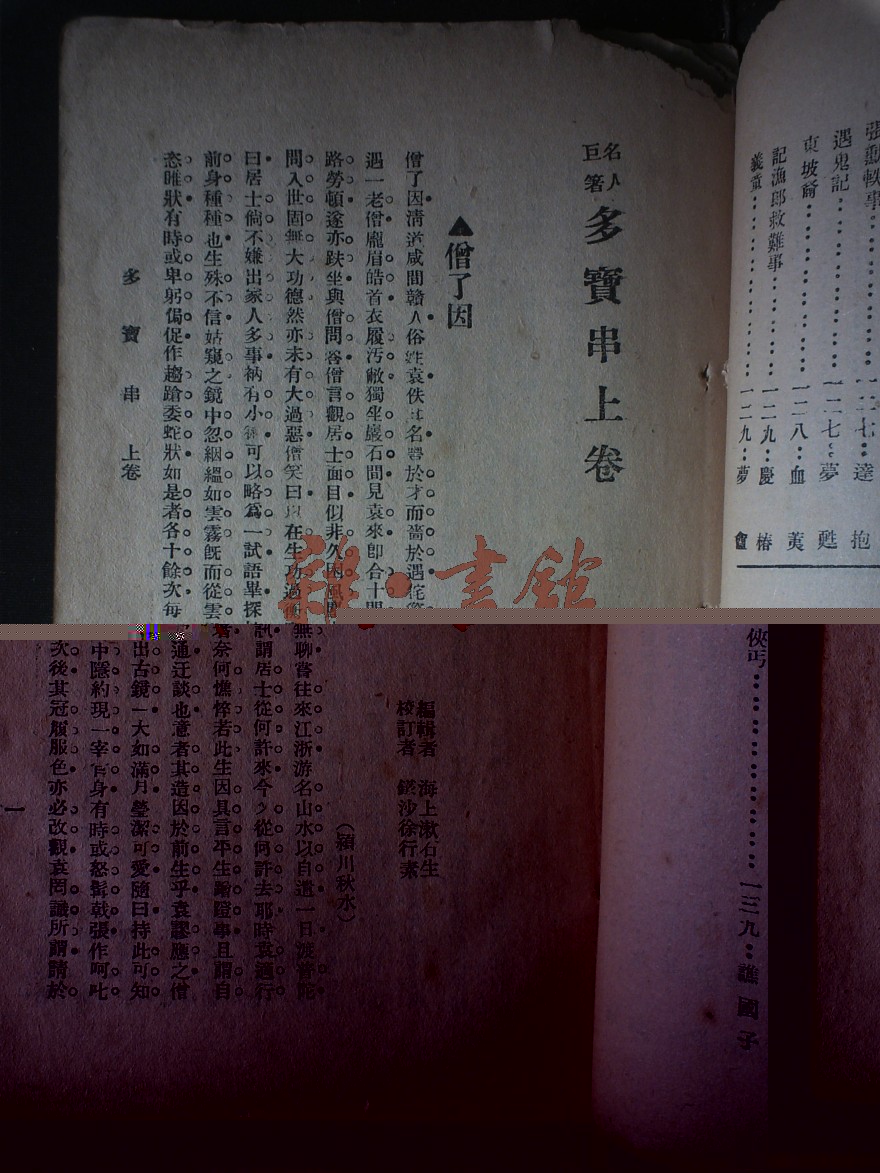 張勳軼事……一二七：逵抱
遇鬼記……一二七：夢甦
東坡裔……一二八：血荑
記漁郎救難事……一二九：慶椿
義童……一二九：夢龕
俠丐……一三九：譙國子
名人巨箸 多寶串上卷
編輯者 海上漱石生
校訂者 鐵沙徐行素
▲僧了因
（潁川秋水）
僧了因清道咸間贛人俗姓袁佚其名豐於才而嗇於遇侘無聊嘗往來江浙游名山水以自遣一日渡普陀
遇一老僧龐眉皓首衣履汚敝獨坐巖石間見袁來卽合十問訊謂居士從何許來今夕從何許去耶時袁適行
路勞頓遂亦趺坐與僧問答僧言觀居士面目似非久困風塵者奈何憔悴若此生因具言平生蹭蹬事且謂自
問入世固無大功德然亦未有大過惡僧笑曰以在生功過衡通迂談也意者其造因於前生乎袁謬應之僧
曰居士倘不嫌出家人多事衲有小術可以略爲一試語畢探出古鏡一大如滿月瑩潔可愛隨曰持此可知
前身種種也生殊不信姑窺之鏡中忽絪縕如雲霧旣而從雲中隱約現一宰官身有時或怒髯戟張作呵叱
恣睢狀有時或卑躬傴促作趨蹌委蛇狀如是者各十餘次每次後其冠履服色亦必改觀袁罔識所謂請於
多寶串 上卷
一
書館